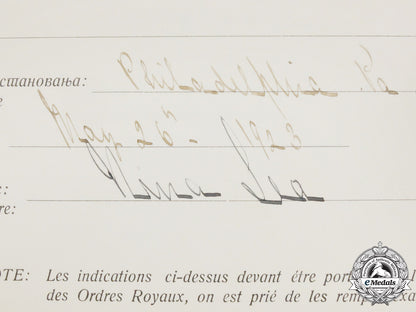 становања: Philadelphia Pa
e
May 26th 1923
:
Nina Lea
re:
OTE: Les indications ci-dessus devant être por
des Ordres Royaux, on est prié de les remp
eMedals